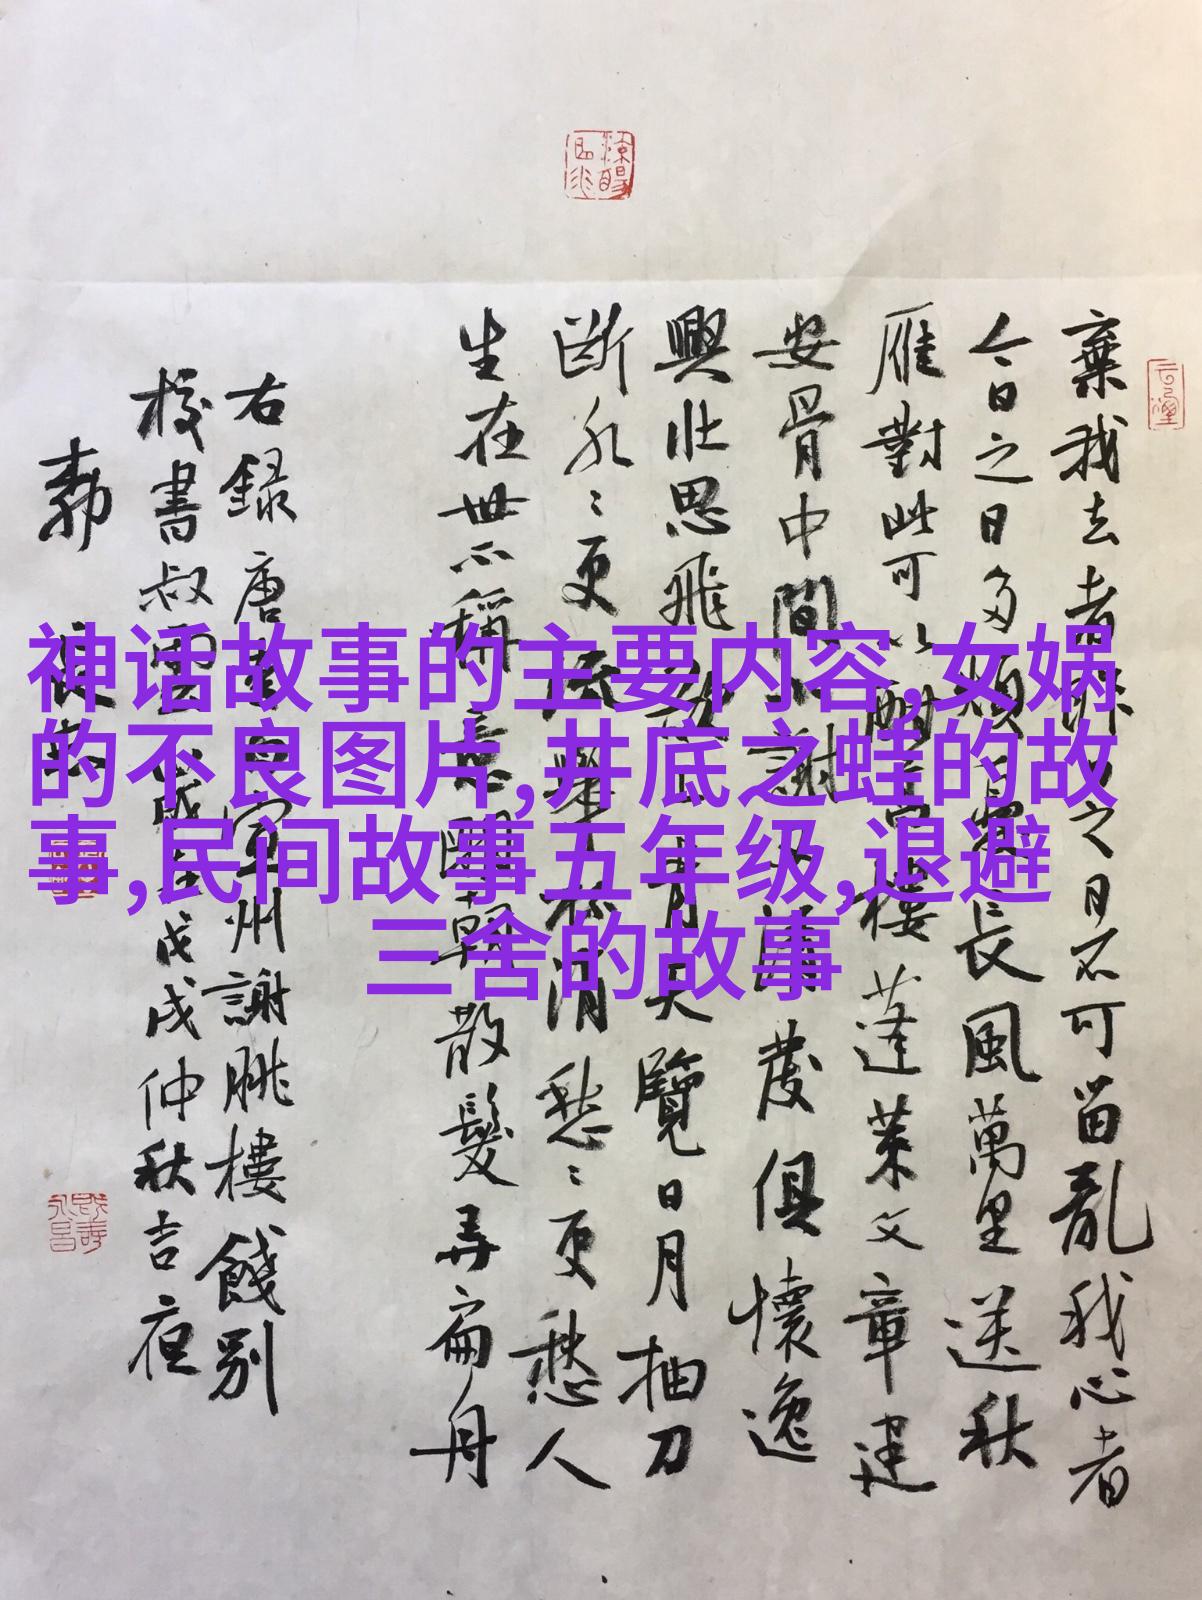 棄我去者昨日之日不可留亂我心者
今日之日多煩憂長風萬里送秋
雁對此可以酣高樓蓬萊文章建
安骨中間小謝又清發俱懷逸
興壯思飛欲上青天覽日月抽刀
斷水〻更流舉杯消愁〻更愁人
生在世不稱意明朝散髮弄扁舟
右錄唐李白宣州謝朓樓餞別
校書叔雲歲在戊戌仲秋吉夜
神话故事的主要内容,女娲
的不良图片,井底之蛙的故
事,民间故事五年级,退避
三舍的故事